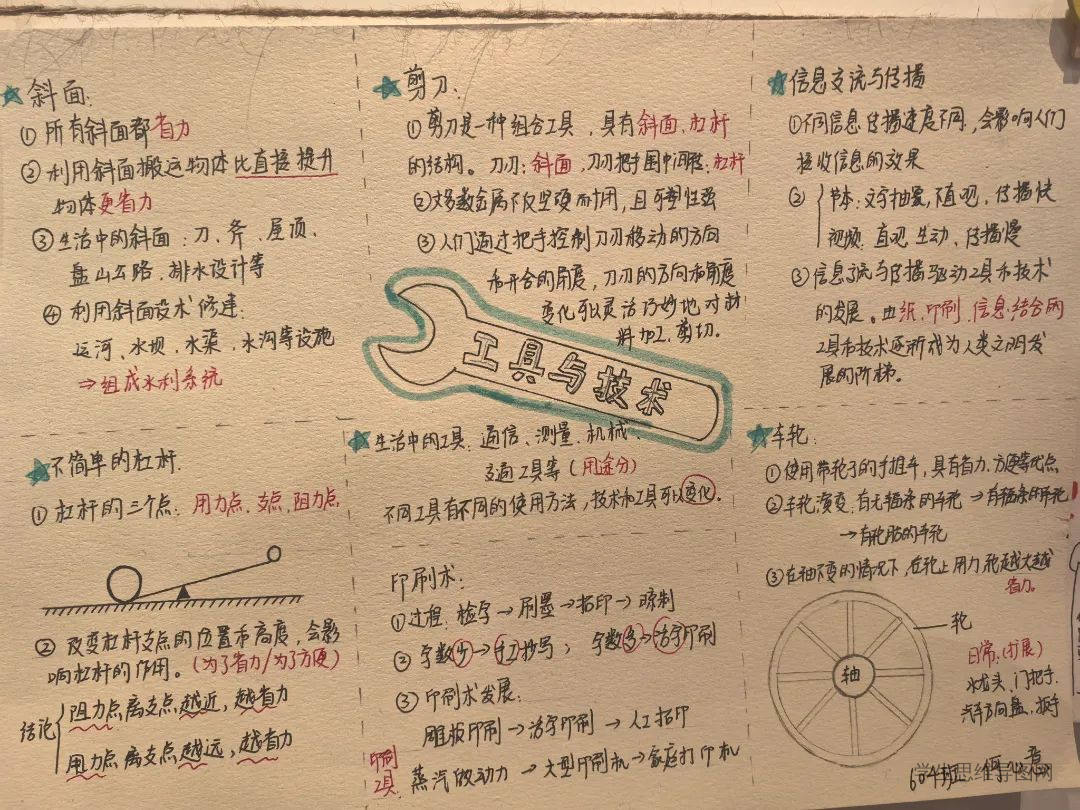 斜面:
① 所有斜面都省力
② 利用斜面搬运物体比直接提升
物体更省力
③ 生活中的斜面:刀、斧、屋顶、
盘山公路、排水设计等
④ 利用斜面设术修建:
运河、水坝、水渠、水沟等设施
⇒组成水利系统
剪刀:
① 剪刀是一种组合工具,具有斜面、杠杆
的结构。刀刃:斜面,刀刃把手围中间轴:杠杆
②大多数金属不仅坚硬而耐用,且可塑性强
③ 人们通过把手控制刀刃移动的方向
和开合的角度,刀刃的方向和角度
变化可以灵活巧妙地对材
料加工、剪切。
信息交流与传播
①不同信息传播速度不同,会影响人们
接收信息的效果
② 书本:文字抽象,不直观,传播快
视频:直观、生动、传播慢
③ 信息交流与传播驱动工具和技术
的发展。由纸、印刷、信息结合的
工具和技术逐渐成为人类文明发
展的阶梯。
工具与技术
不简单的杠杆.
① 杠杆的三个点:用力点、支点、阻力点.
② 改变杠杆支点的位置和高度,会影
响杠杆的作用。(为了省力/为了方便)
结论
阻力点离支点越近,越省力
用力点离支点越远,越省力
生活中的工具:通信、测量、机械、
交通工具等(用途分)
不同工具有不同的使用方法,技术和工具可以变化。
印刷术:
①过程:检字→刷墨→拓印→晾制
② 字数少→手工抄写;字数多→活字印刷
③ 印刷术发展:
雕版印刷→活字印刷→人工拓印
印刷工具:
蒸汽做动力→大型印刷机→家庭打印机
车轮:
①使用带轮子的手推车,具有省力、方便等优点
②车轮演变:有无辐条的车轮→有辐条的车轮
→有轮胎的车轮
③在轴不变的情况下,在轮上用力,轮越大越
省力。
轮
轴
日常:(扩展)
水龙头、门把手、
汽车方向盘、扳手
604班
思维导图网